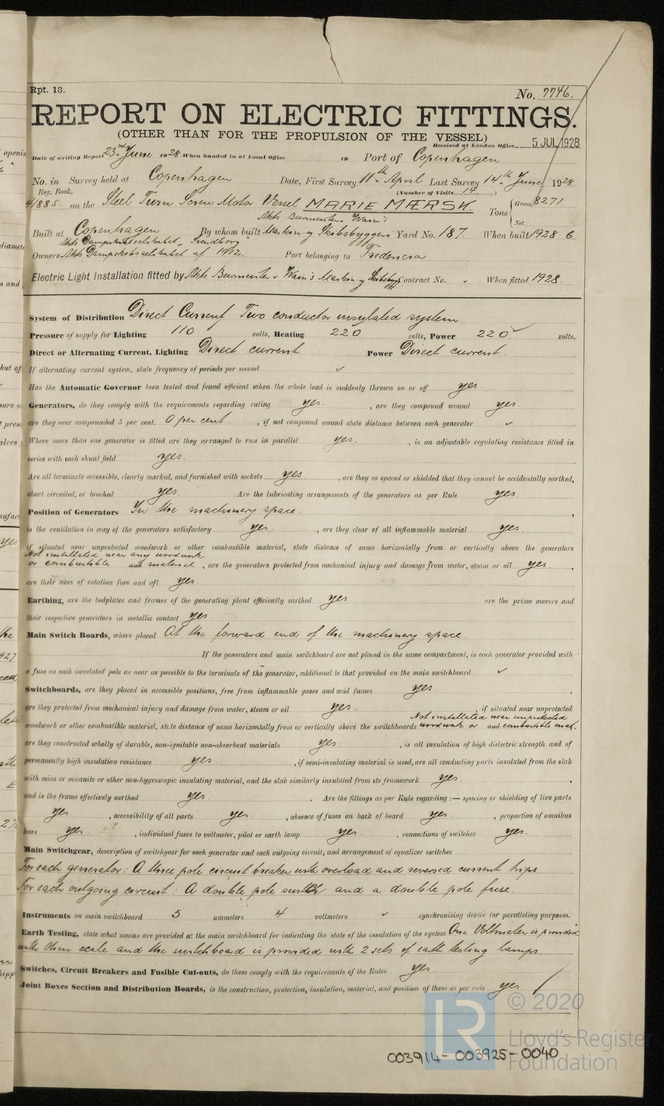 Rpt. 13.
No. 7746.
REPORT ON ELECTRIC FITTINGS.
(OTHER THAN FOR THE PROPULSION OF THE VESSEL)
Received at London Office 5 JUL 1928
Date of writing Report 23rd June 1928 When handed in at Local Office 19 Port of Copenhagen
No. in Survey held at Copenhagen Date, First Survey 11th April Last Survey 14th June 1928
Reg. Book. (Number of Visits 14)
41885 on the Steel Twin Screw Motor Vessel MARIE MÆRSK Tons Gross 8271
Net
Akts Burmeister & Wain's
Built at Copenhagen By whom built Maskin og Skibsbyggeri Yard No. 187. When built 1928 6
Akts Dampskibsselskabet Svendborg
Owners Akts Dampskibsselskabet af 1912. Port belonging to Fredericia
Electric Light Installation fitted by Akts Burmeister & Wain's Maskin og Skibsbyg. Contract No. When fitted 1928.
System of Distribution Direct Current Two conductor insulated system
Pressure of supply for Lighting 110 volts, Heating 220 volts, Power 220 volts.
Direct or Alternating Current, Lighting Direct current Power Direct current
If alternating current system, state frequency of periods per second ✓
Has the Automatic Governor been tested and found efficient when the whole load is suddenly thrown on or off yes.
Generators, do they comply with the requirements regarding rating yes , are they compound wound yes.
are they over compounded 5 per cent. 0 per cent. , if not compound wound state distance between each generator ✓
Where more than one generator is fitted are they arranged to run in parallel yes. , is an adjustable regulating resistance fitted in
series with each shunt field yes.
Are all terminals accessible, clearly marked, and furnished with sockets yes , are they so spaced or shielded that they cannot be accidentally earthed,
short circuited, or touched yes Are the lubricating arrangements of the generators as per Rule yes.
Position of Generators In the machinery space
is the ventilation in way of the generators satisfactory yes , are they clear of all inflammable material yes.
if situated near unprotected woodwork or other combustible material, state distance of same horizontally from or vertically above the generators
Not installed near any woodwork
or combustible and material , are the generators protected from mechanical injury and damage from water, steam or oil yes
are their axes of rotation fore and aft yes
Earthing, are the bedplates and frames of the generating plant efficiently earthed yes are the prime movers and
their respective generators in metallic contact yes
Main Switch Boards, where placed At the forward end of the machinery space.
If the generators and main switchboard are not placed in the same compartment, is each generator provided with
a fuse on each insulated pole as near as possible to the terminals of the generator, additional to that provided on the main switchboard ✓
Switchboards, are they placed in accessible positions, free from inflammable gases and acid fumes yes.
are they protected from mechanical injury and damage from water, steam or oil yes. , if situated near unprotected
Not installated near unprotected
woodwork or other combustible material, state distance of same horizontally from or vertically above the switchboards woodwork or and combustible mat.
are they constructed wholly of durable, non-ignitable non-absorbent materials yes , is all insulation of high dielectric strength and of
permanently high insulation resistance yes. , if semi-insulating material is used, are all conducting parts insulated from the slab
with mica or micanite or other non-hygroscopic insulating material, and the slab similarly insulated from its framework yes
and is the frame effectively earthed yes Are the fittings as per Rule regarding:— spacing or shielding of live parts
yes , accessibility of all parts yes , absence of fuses on back of board yes , proportion of omnibus
bars yes , individual fuses to voltmeter, pilot or earth lamp yes , connections of switches yes.
Main Switchgear, description of switchgear for each generator and each outgoing circuit, and arrangement of equalizer switches
For each generator: A three pole circuit breaker with overload and reversed current trips.
For each outgoing circuit: A double pole switch and a double pole fuse.
Instruments on main switchboard 5 ammeters 4 voltmeters synchronising device for paralleling purposes.
Earth Testing, state what means are provided at the main switchboard for indicating the state of the insulation of the system One Voltmeter is provided
with Ohm scale and the switchboard is provided with 2 sets of earth testing lamps
Switches, Circuit Breakers and Fusible Cut-outs, do these comply with the requirements of the Rules yes
Joint Boxes Section and Distribution Boards, is the construction, protection, insulation, material, and position of these as per rule yes
© 2020
LR
Lloyd's Register
Foundation
003914-003925-0040